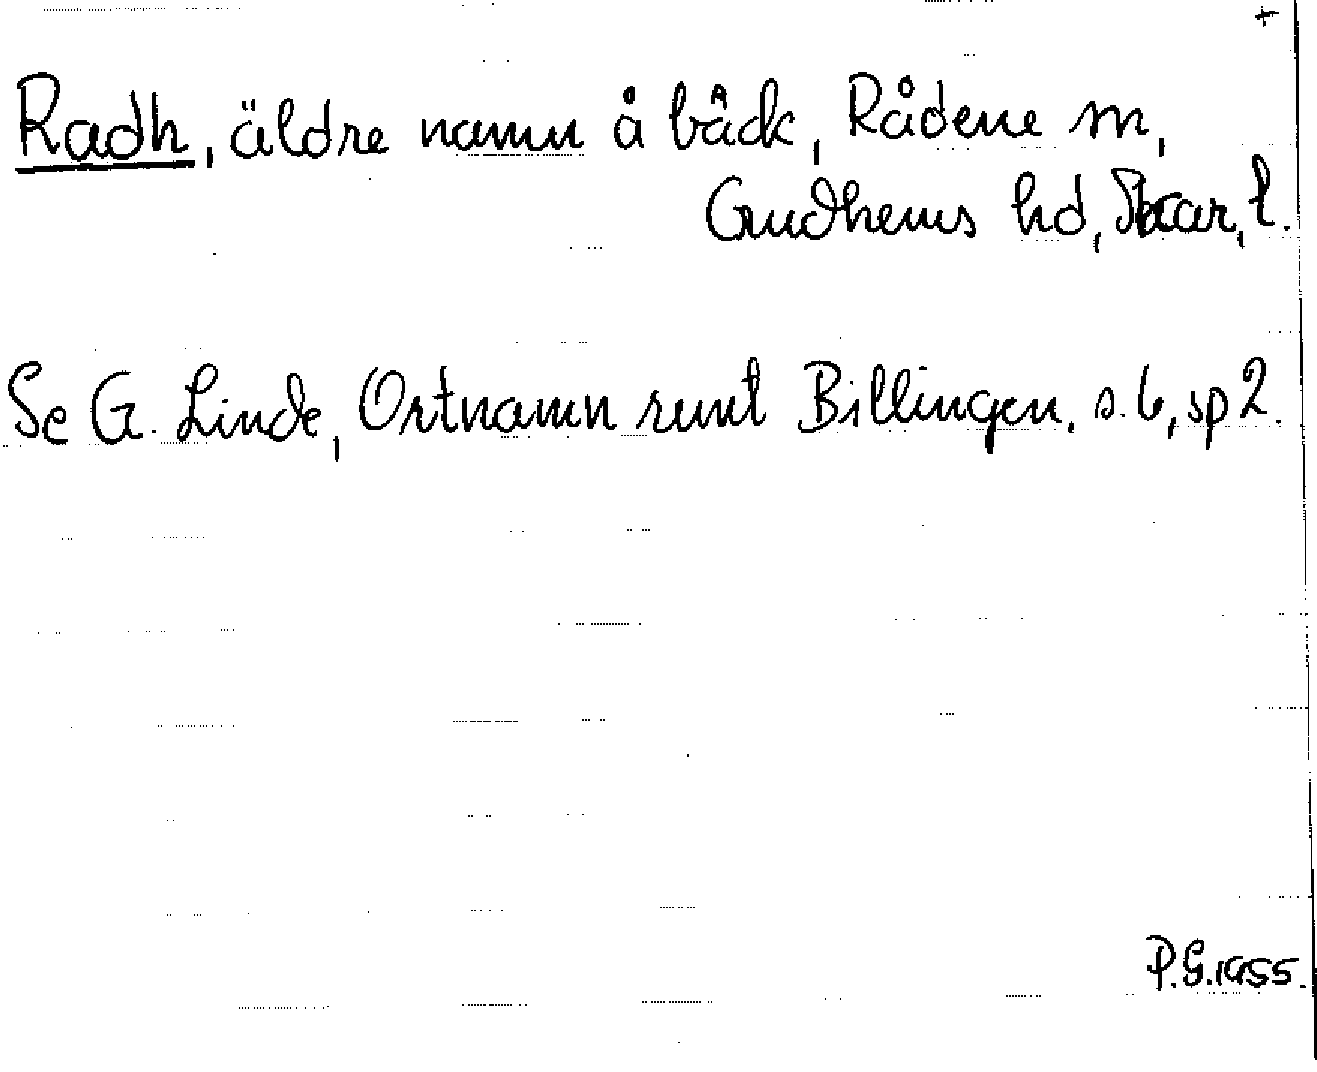 +
Radh, äldre namn å bäck, Rådene sn,
Gudhems hd, Skar. l.
Se G. Linde, Ortnamn runt Billingen, s. 6, sp 2.
P.G. 1955.